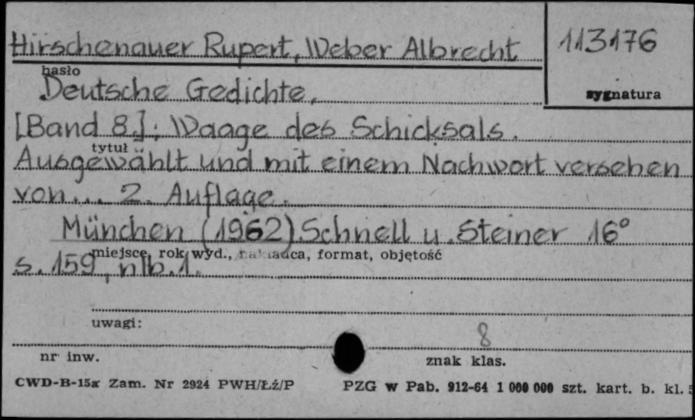 Hirschenauer Rupert, Weber Albrecht 113176
hasło sygnatura
Deutsche Gedichte.
[Band 8.]: Waage des Schicksals.
tytuł
Ausgewählt und mit einem Nachwort versehen
von... 2. Auflage.
München (1962) Schnell u. Steiner 16°
miejsce, rok wyd., nakładca, format, objętość
s. 159, nlb. 1.
uwagi:
8
nr inw. znak klas.
CWD-B-15a Zam. Nr 2924 PWH/Łź/P PZG w Pab. 912-64 1 000 000 szt. kart. b. kl. 5